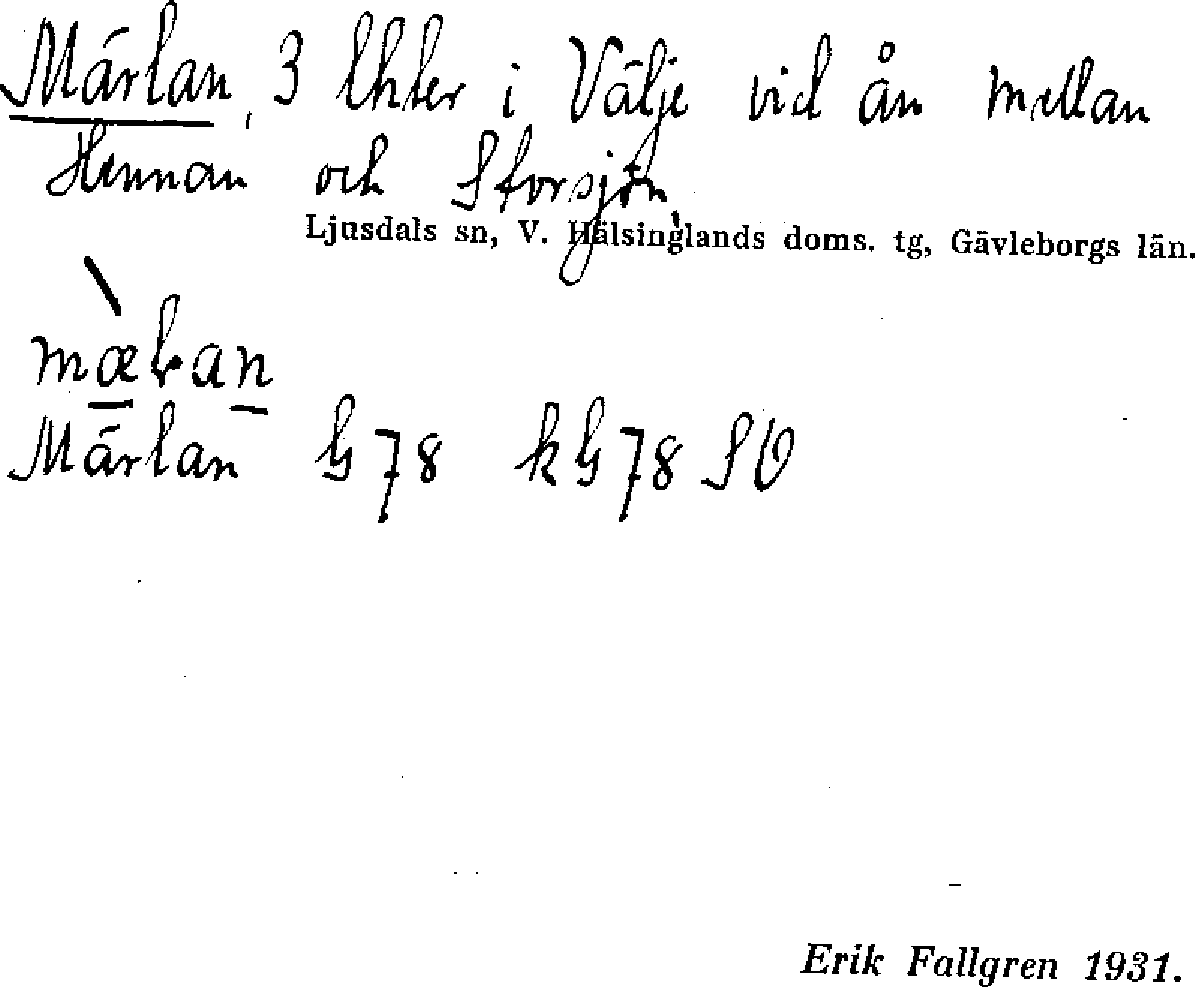 Märlan, 3 lhter i Välje vid ån mellan
Hennan och Storsjön.
Ljusdals sn, V. Hälsinglands doms. tg, Gävleborgs län.
Märlan G 78 kG 78 SV
Erik Fallgren 1931.